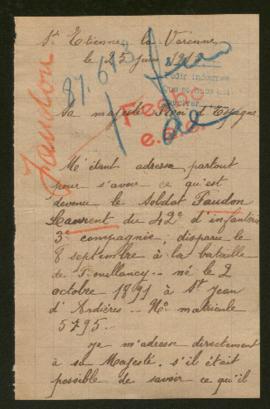 St Etienne la Varenne
le 25 juin 1915
Paudon
87.613
Pedir informes
Fecho
e.
Sa majesté Le Roi d'Espagne,
M'étant adressé partout
pour s'avoir ce qu'est
devenu le soldat Paudon
Laurent du 42e d'infanterie
3e compagnie, disparu le
8 septembre à la bataille
de Fouillancy - né le 2
octobre 1891 à St Jean
d'Ardières - No matricule
5795.
je m'adresse directement
à sa Majesté, s'il était
possible de savoir ce qu'il